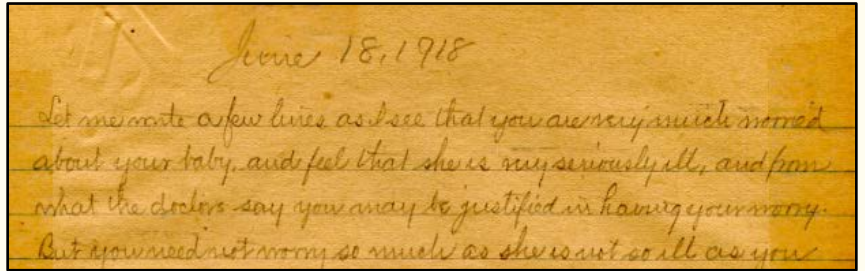 June 18, 1918
Let me write a few lines as I see that you are very much worried
about your baby, and feel that she is very seriously ill, and from
what the doctors say you may be justified in having your worry.
But you need not worry so much as she is not so ill as you